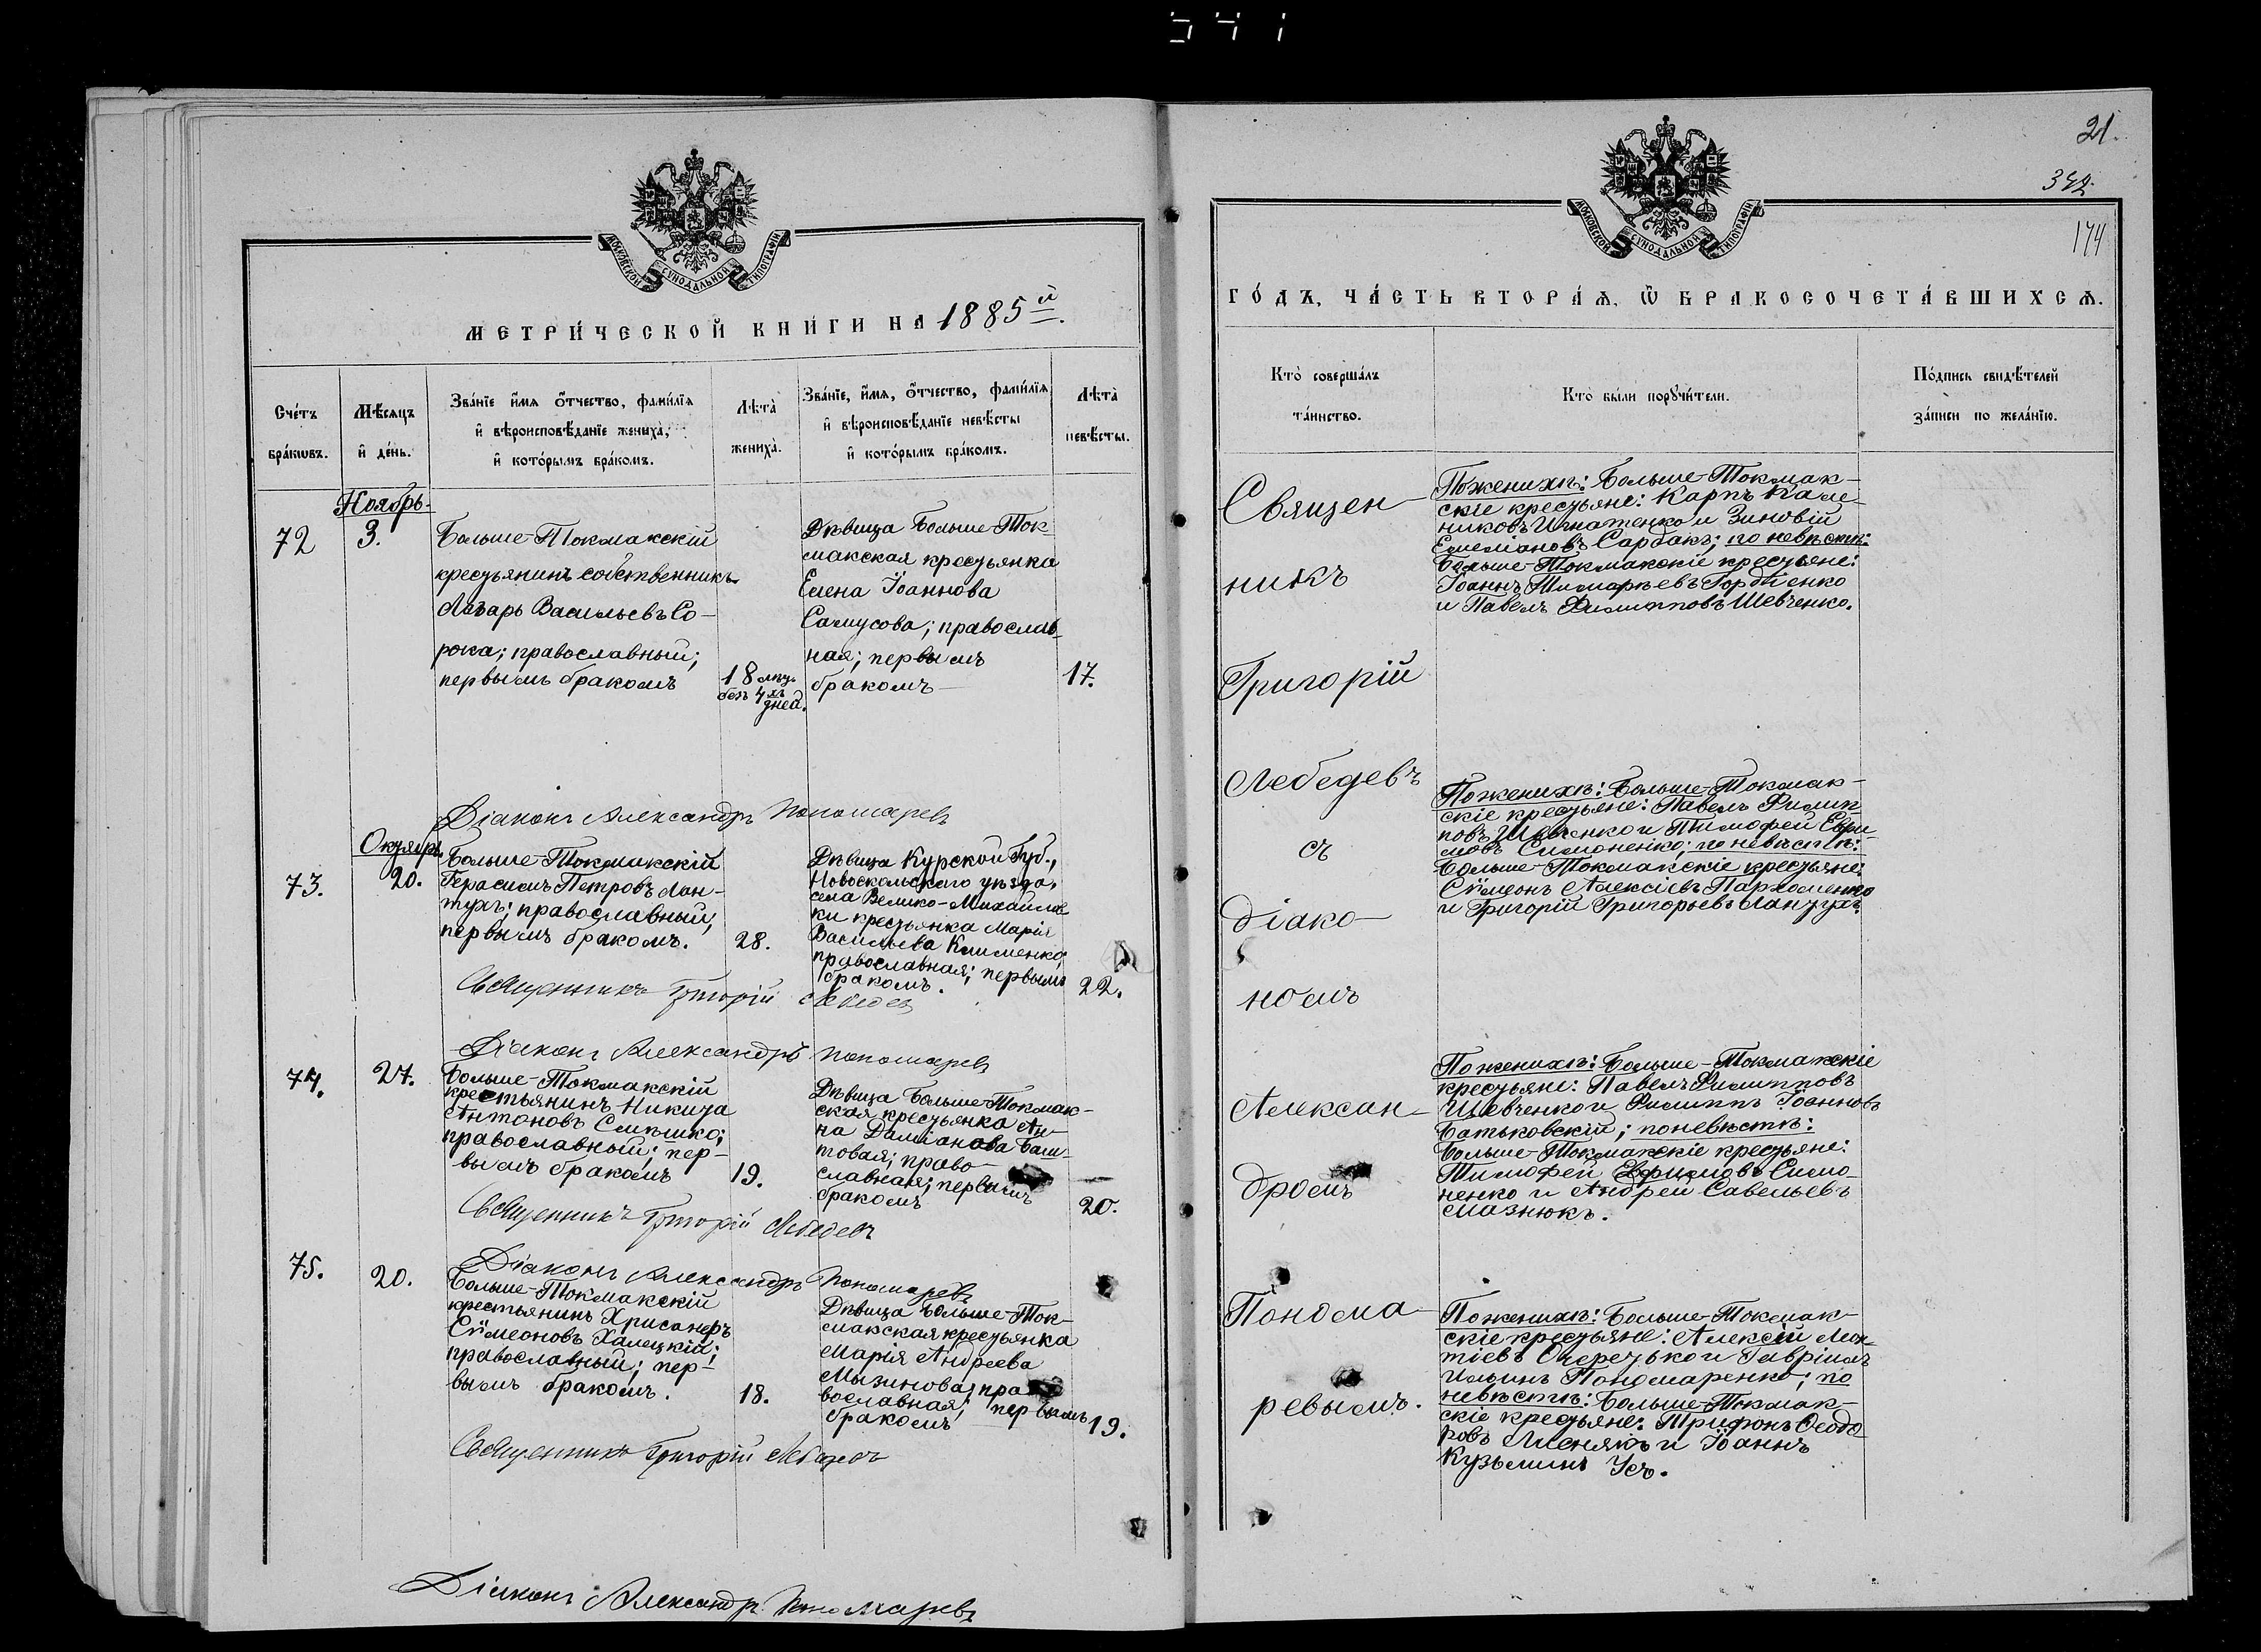 541
МОСКОВСКОЙ СУНОДАЛЬНОЙ ТИПОГРАФІИ
МЕТРИ́ЧЕСКОЙ КНИ́ГИ НА 1885й.
Сче́тъ бра́кωвъ.
Мѣ́сяцъ и҆ де́нь.
Зва́нїе и҆́мя ѻ҆́тчество, фами́лїя и҆ вѣроисповѣ́данїе жениха̀, и҆ кото́рымъ бра́комъ.
Лѣта̀ жениха̀.
Зва́нїе, и҆́мя, ѻ҆́тчество, фами́лїя и҆ вѣроисповѣ́данїе невѣ́сты и҆ кото́рымъ бра́комъ.
Лѣта̀ невѣ́сты.
Ноябрь.
72
3.
Больше-Токмакскій
крестьянинъ собственникъ
Лазарь Васильевъ Со-
рока; православный;
первымъ бракомъ
18 лѣт.
безъ 4хъ
дней.
Дѣвица Больше-Ток-
макская крестьянка
Елена Іоаннова
Самусова; православ-
ная; первымъ
бракомъ
17.
Діаконъ Александръ Пономаревъ
Октябрь
73.
20.
Больше-Токмакскій
Герасимъ Петровъ Лан-
тухъ; православный;
первымъ бракомъ.
28.
Дѣвица Курской Губ.,
Новоскольскаго уѣзда,
села Велико-Михайлов
ки крестьянка Марія
Васильева Клименко;
православная; первымъ
бракомъ.
22.
Священникъ Григорій Лебедев
Діаконъ Александръ Пономаревъ
74.
27.
Больше-Токмакскій
крестьянинъ Никита
Антоновъ Слѣшко;
православный; пер-
вымъ бракомъ
19.
Дѣвица Больше-Токмак-
ская крестьянка Ан-
на Даміанова
товая; право-
славная; первымъ
бракомъ
20.
Священникъ Григорій Лебедевъ
75.
20.
Діаконъ Александръ Пономаревъ
Больше-Токмакскій
крестьянинъ Хрисанфъ
Сѵмеоновъ Халецкій;
православный; пер-
вымъ бракомъ.
18.
Дѣвица Больше-Ток-
макская крестьянка
Марія Андреева
Мызинова; пра
вославная; первымъ
бракомъ
19.
Священникъ Григорій Лебедевъ
Діаконъ Александръ Пономаревъ
21.
342.
174
МОСКОВСКОЙ СУНОДАЛЬНОЙ ТИПОГРАФІИ
ГО́ДЪ, ЧА́СТЬ ВТОРА́Ѧ, Ѽ БРАКОСОЧЕТА́ВШИХСѦ.
Кто̀ соверша́лъ та́инство.
Кто̀ бы́ли порꙋчи́тели.
По́дпись свидѣ́телей за́писи по жела́нїю.
Священ-
никъ
Григорій
Лебедевъ
съ
діако-
номъ
Алексан-
дромъ
Понома-
ревымъ.
По женихѣ: Больше-Токмак-
скіе крестьяне: Карпъ Кале-
никовъ Игнатенко и Зиновій
Емеліановъ Сарбакъ; по невѣстѣ:
Больше-Токмакскіе крестьяне:
Іоаннъ Тимофѣевъ Гордіенко
и Павелъ Филипповъ Шевченко.
По женихѣ: Больше-Токмак-
скіе крестьяне: Павелъ Филип
повъ Шевченко и Тимофей Ефи-
мовъ Симоненко; по невѣстѣ:
Больше-Токмакскіе крестьяне:
Сѵмеонъ Алексіевъ Пархоменко
и Григорій Григорьевъ Лантухъ.
По женихѣ: Больше-Токмакскіе
крестьяне: Павелъ Филипповъ
Шевченко и Филиппъ Іоанновъ
Батьковскій; по невѣстѣ:
Больше-Токмакскіе крестьяне:
Тимофей Ефимовъ Симо-
ненко и Андрей Савельевъ
Мазнюкъ.
По женихѣ: Больше-Токмак-
скіе крестьяне: Алексій Мат
тіевъ Очеретько и Гавріилъ
Ильинъ Пономаренко; по
невѣстѣ: Больше-Токмак-
скіе крестьяне: Трифонъ Ѳеодо
ровъ и Іоаннъ
Кузьминъ Усъ.